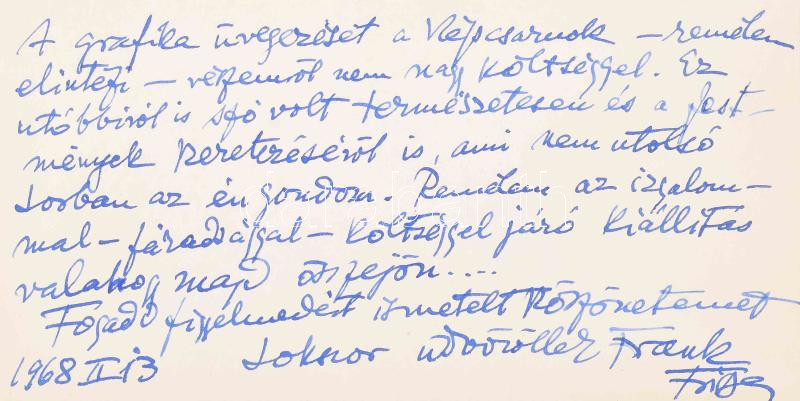 A grafika üvegezését a Képcsarnok – remélem
elintézi – részemről nem nagy költséggel. Ez
utóbbiról is szó volt természetesen és a fest-
mények keretezéséről is, ami nem utolsó
sorban az én gondom. Remélem az izgalom-
mal – fáradsággal – költséggel járó kiállítás
valahogy majd összejön....
Fogadd figyelmedért ismételt köszönetemet
Sokszor üdvözöllek Frank
1968 II 13